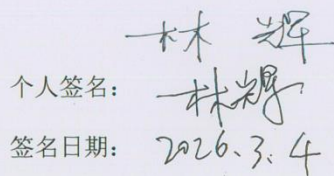 林辉
个人签名：林辉
签名日期：2026.3.4